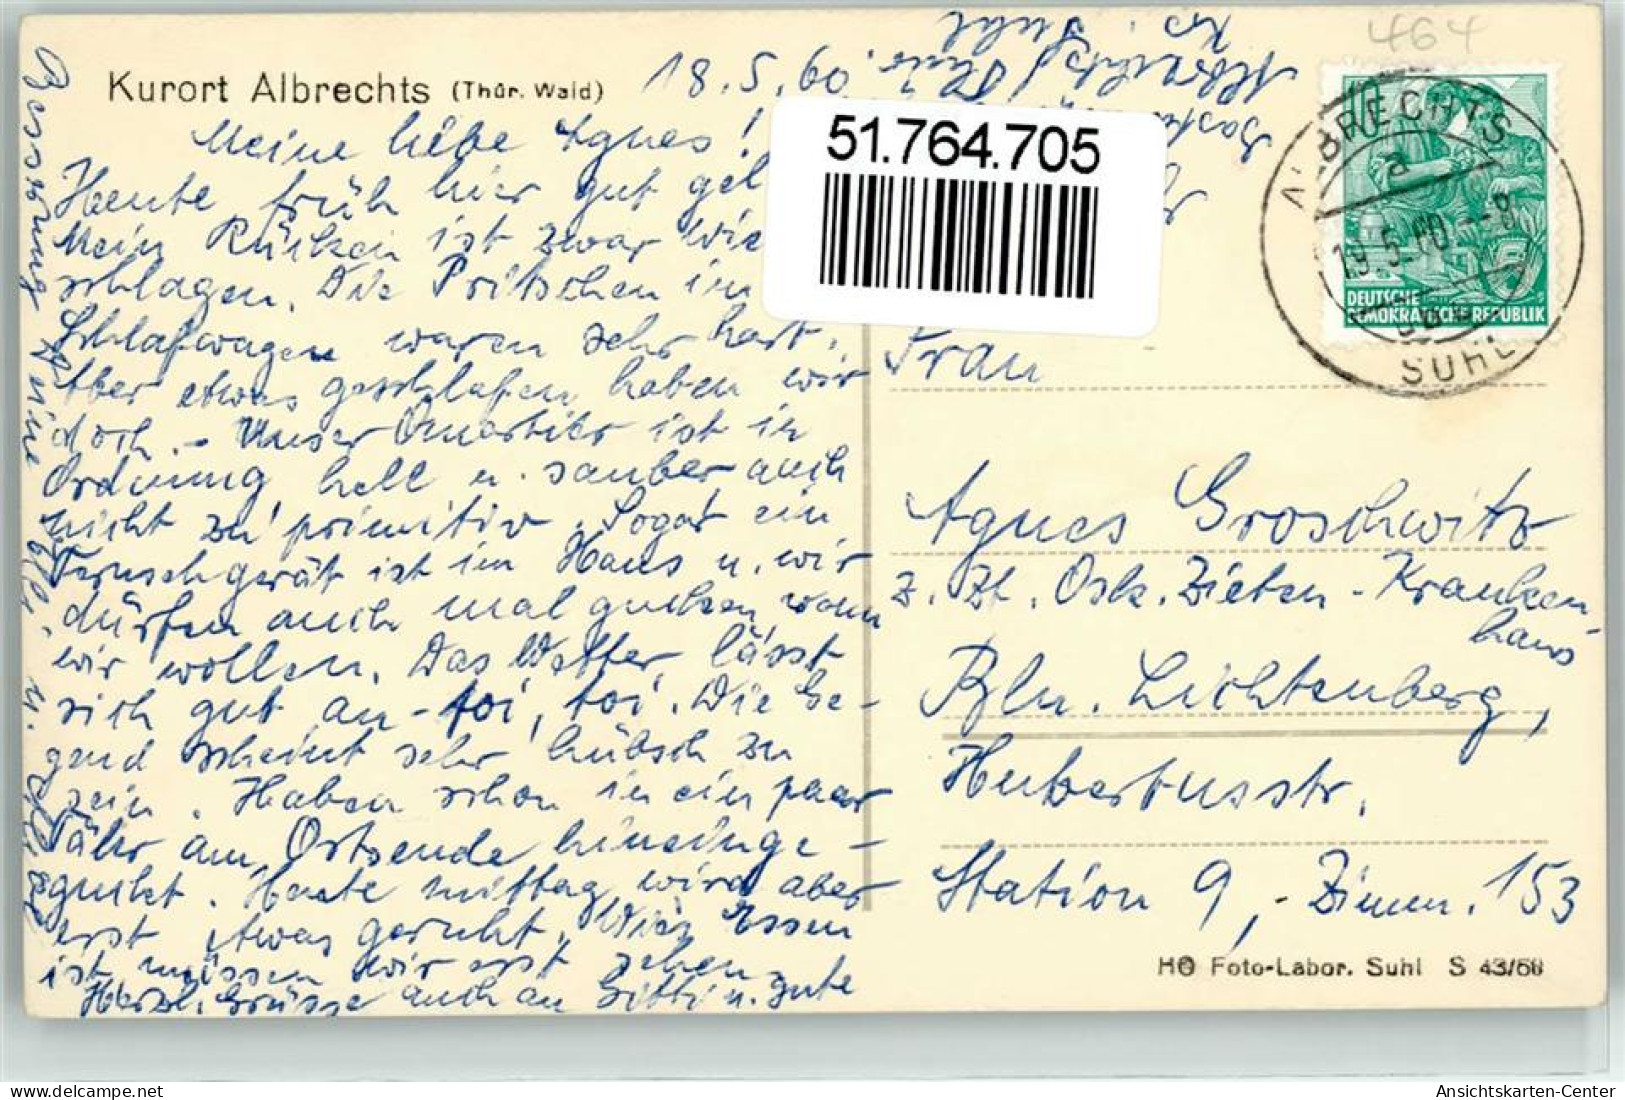 464
Kurort Albrechts (Thür. Wald)
18.5.60.
Albrechts / Thür.
Kr. Suhl
Meine liebe Agnes!
Heute früh hier gut gel
Mein Rücken ist zwar wie
schlagen. Die Pritschen im
Schlafwagen waren sehr hart.
Aber etwas geschlafen haben wir
doch. - Unser Quartier ist in
Ordnung, hell u. sauber auch
nicht zu primitiv. Sogar ein
Fernsehgerät ist im Haus u. wir
dürfen auch mal gucken, wann
wir wollen. Das Wetter lässt
sich gut an - toi, toi. Die Ge-
gend scheint sehr hübsch zu
sein. Haben schon in ein paar
Täler am Ortsende hineinge-
guckt. Heute mittag wird aber
erst etwas geruht. Wie Essen
ist müssen wir erst sehen
Herzl. Grüsse auch an Gitti u. gute
Besserung Deine u.
51.764.705
ALBRECHTS
a
19.5.60.-8
SUHL
10
DEUTSCHE
DEMOKRATISCHE REPUBLIK
Frau
Agnes Groschwitz
z. Zt. Osk. Zieten-Kranken-
haus
Bln. Lichtenberg,
Hubertusstr.
Station 9, - Zimm. 153
HO Foto-Labor. Suhl S 43/58
Ansichtskarten-Center